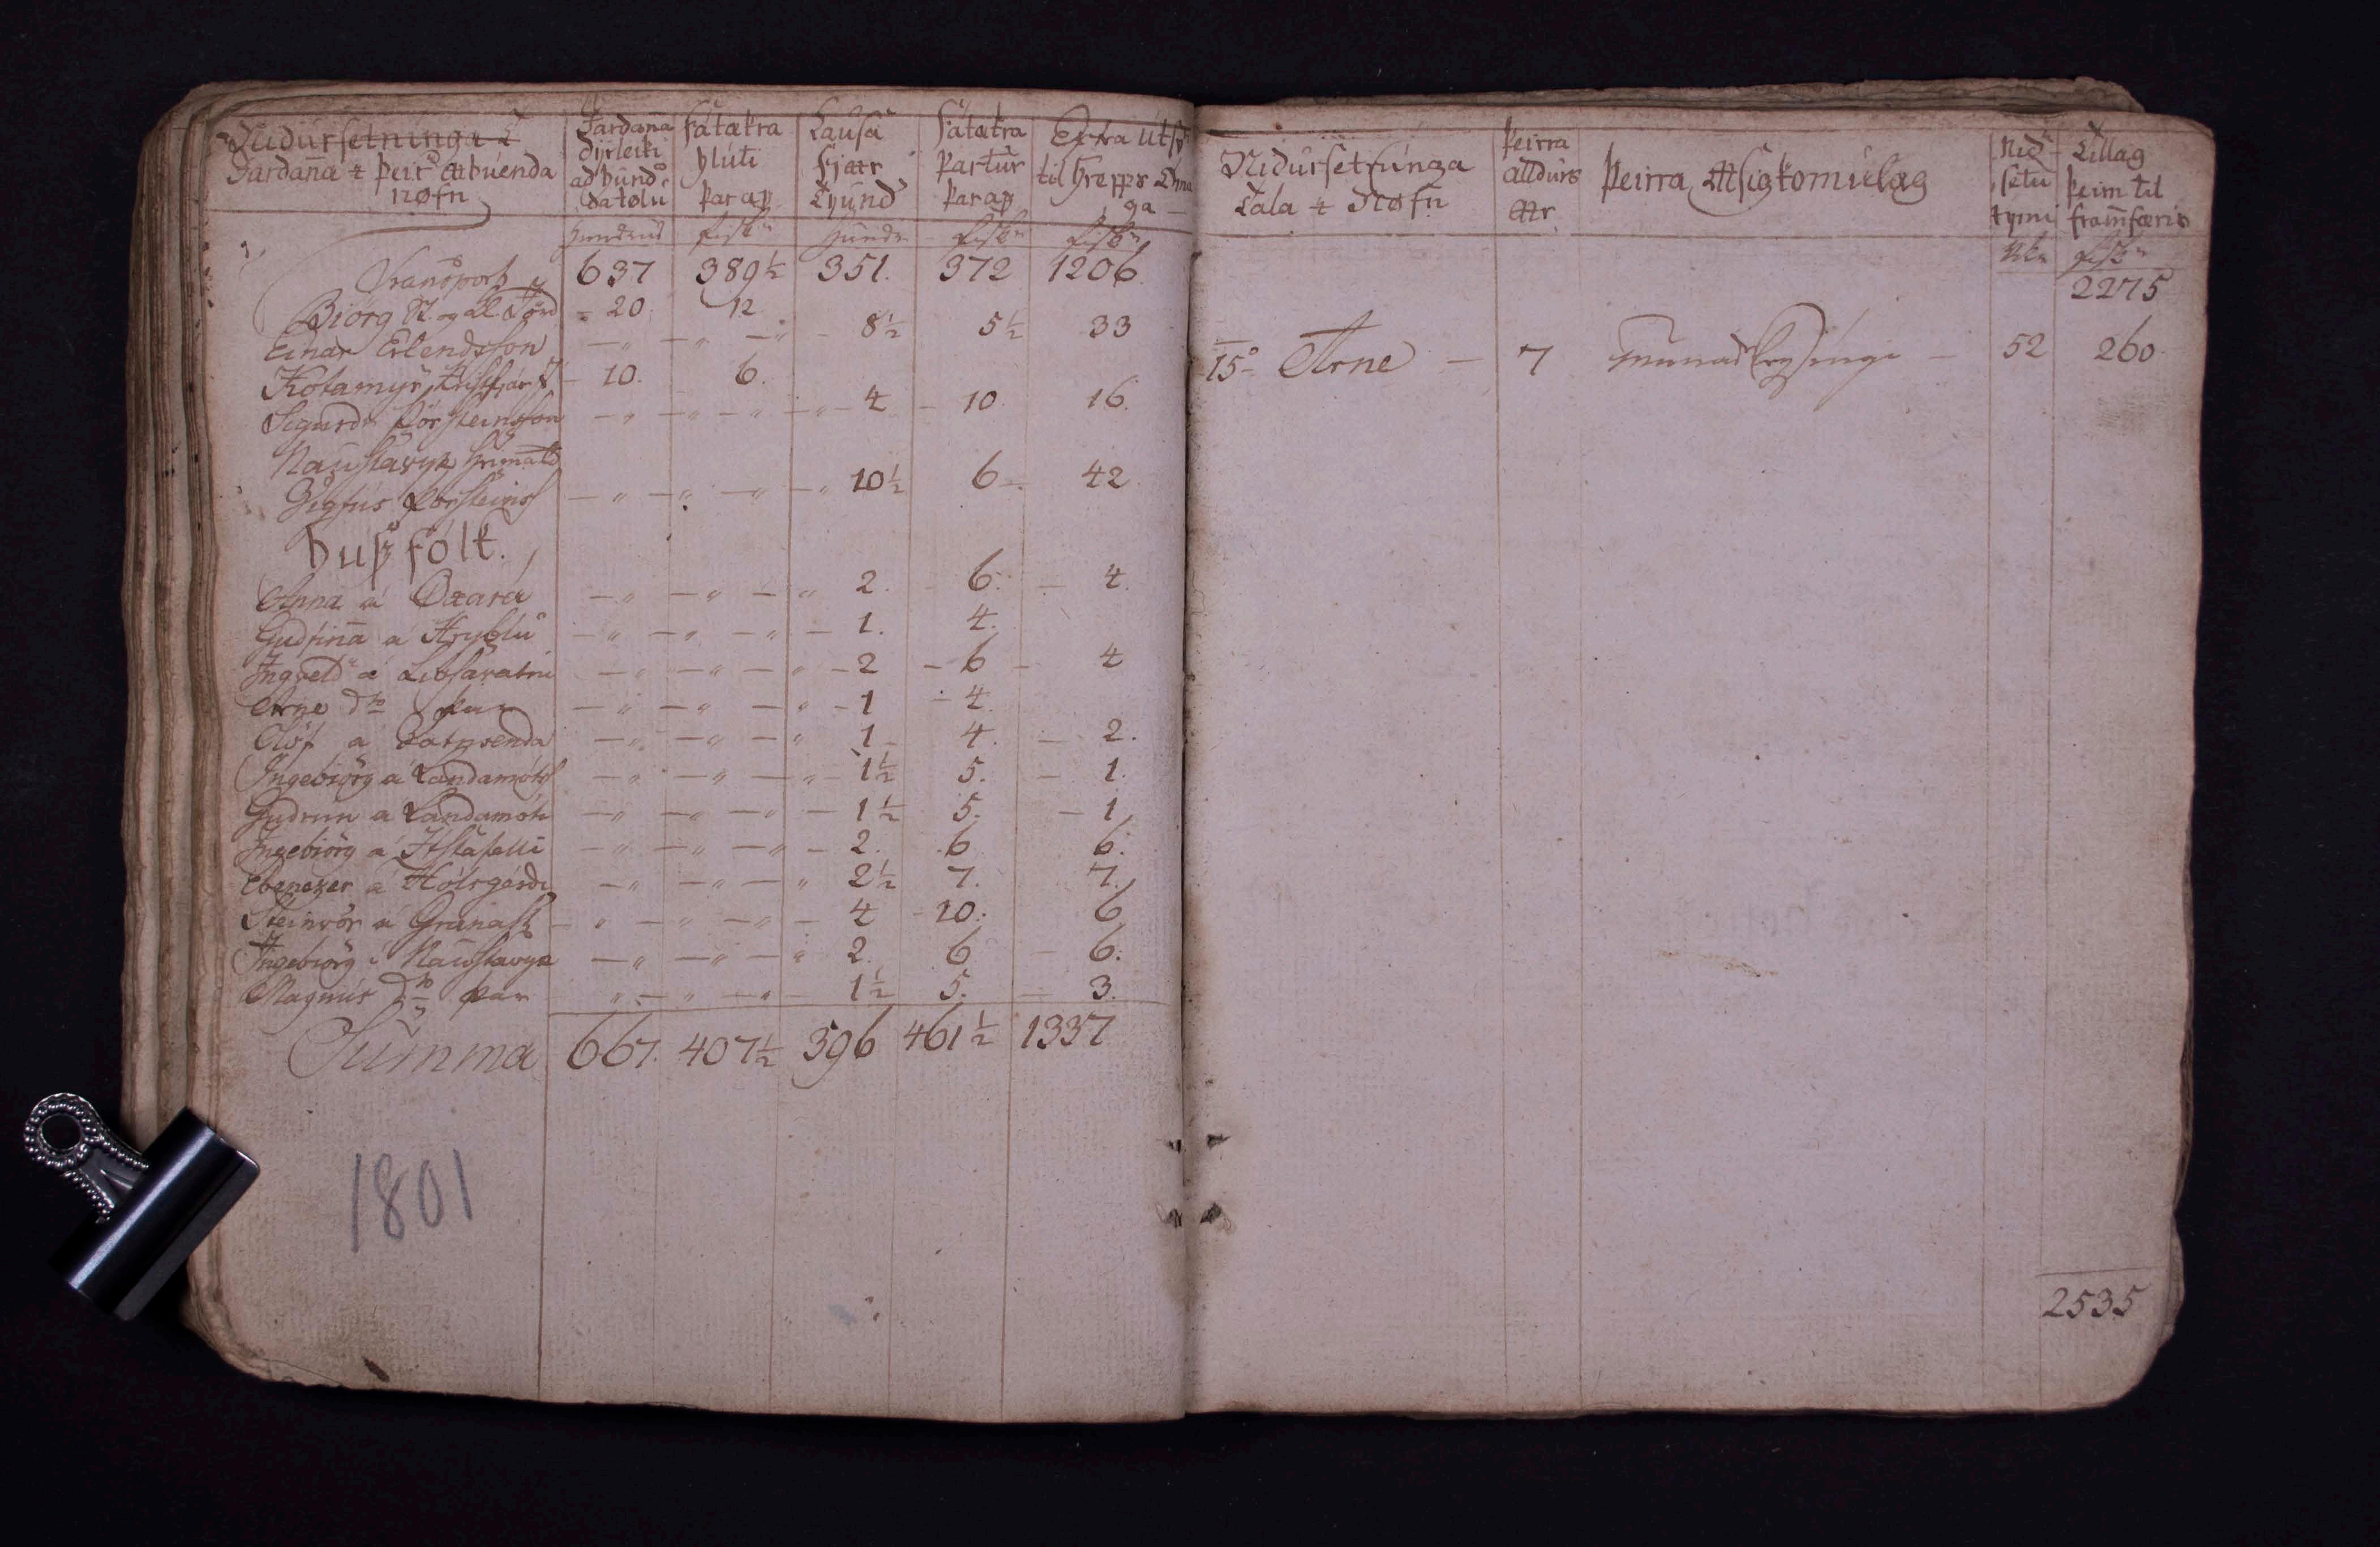 Jardaña & þeir ábúenda
nøfn
Jardaña dýrleiki ad hundr
Fátækra hluti þar af
Lausa fjár Tyund
Fátækra partur þar af
Extra útsv
til hrepps Óma
ga
hundrud fiskr hundr fiskr fiskr
Transport 637 389½ 351. 372 1206
Biörg 20. 12
Einar Erlendsson 8½ 5½ 33
Kotamýr 10. 6.
Sigurdr Þorsteinsson 4 10 16.
Naustavyk
Sigfús Þorsteins 10½ 6 42.
Huss fólk.
Anna á 2. 6. 4.
Gudfiña á 1. 4.
Ingveld á 2 6 4
Arne do þar 1 4.
Olöf á 1 4. 2.
Ingebiörg á Landamóts 1½ 5. 1.
Gudrun á Landamóti 1½ 5. 1
Ingebiörg á 2. 6 6.
Ebenezer á Hólsgérdi 2½ 7. 7.
Steinvör á Granast 4 10. 6
Ingebiörg í Naustavyk 2. 6 6.
Magnús do þar 1½ 5. 3.
Summa 667. 407½ 396 461½ 1337
1801
Nidursetfúnga
Tala & Nøfn
þeirra
alldurs
ár
þeirra ásigkomulag
Nidr
setu
tymi
Tillag
þeim til
frañfæris
fiskr
2275
15 Arne 7 52 260.
2535